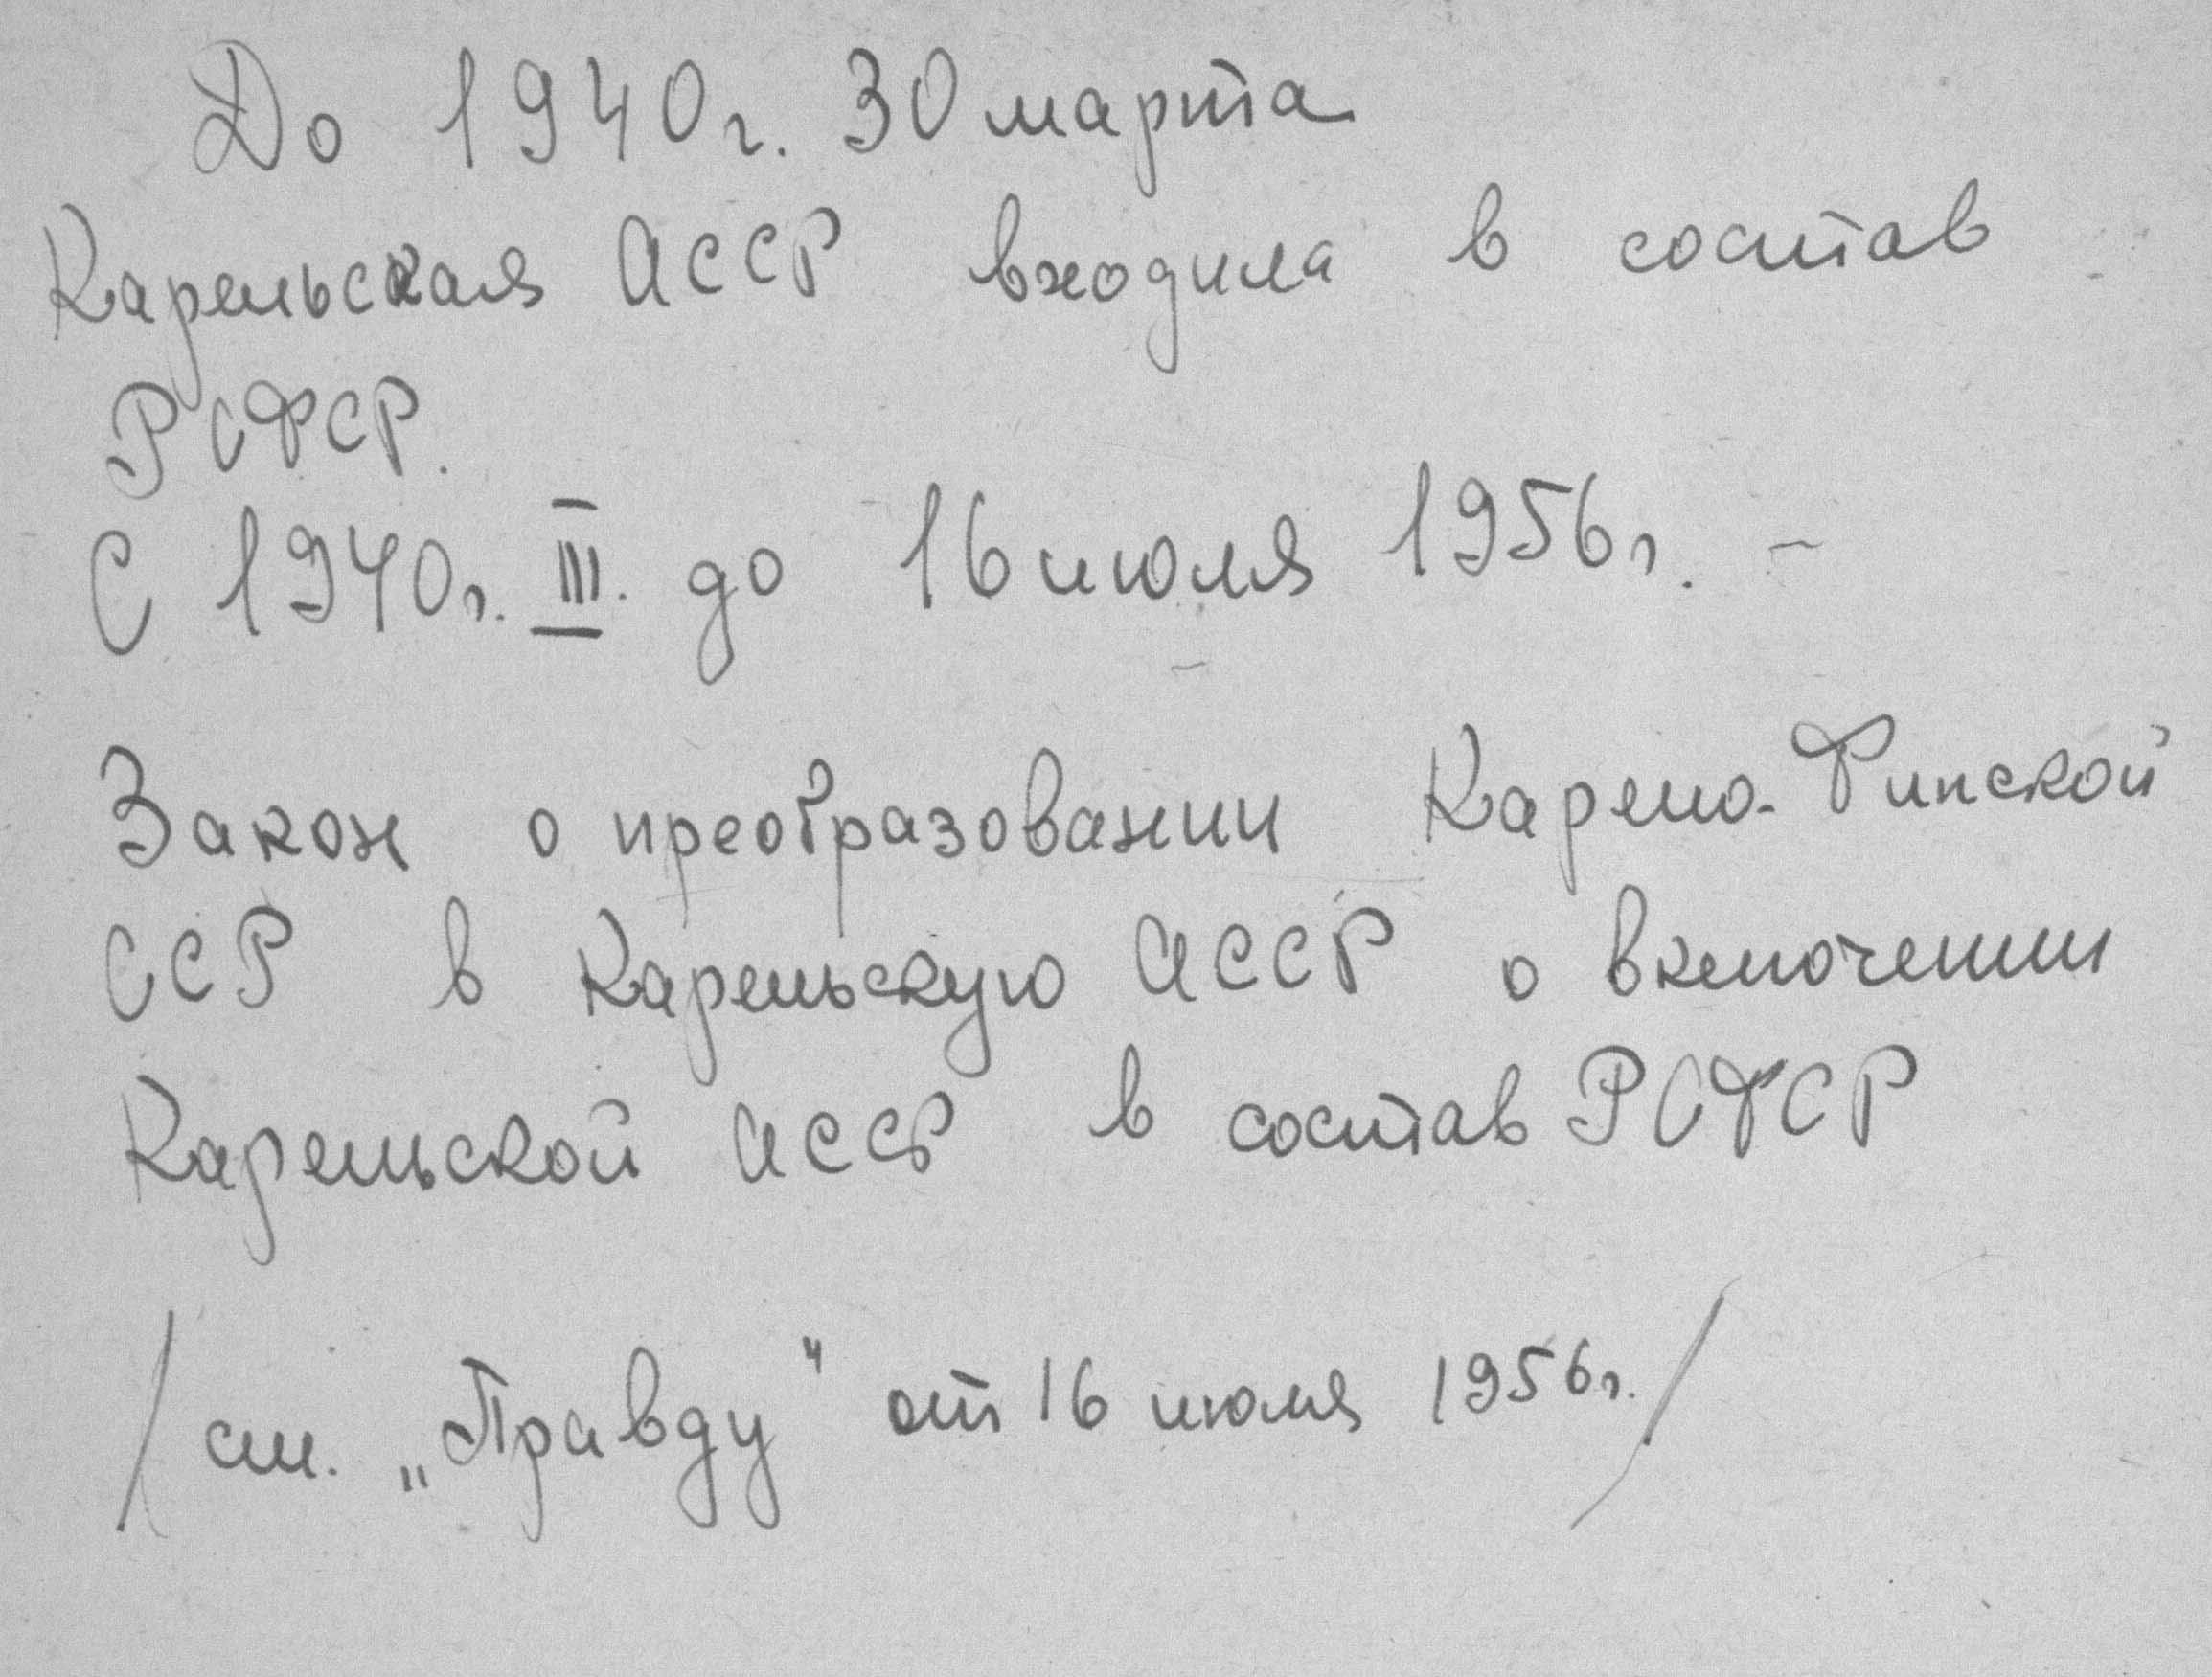 До 1940 г. 30 марта
Карельская АССР входила в состав
РСФСР.
С 1940 г. III. до 16 июля 1956 г. –
Закон о преобразовании Карело-Финской
ССР в Карельскую АССР о включении
Карельской АССР в состав РСФСР
/ см. „Правду" от 16 июля 1956 г. /